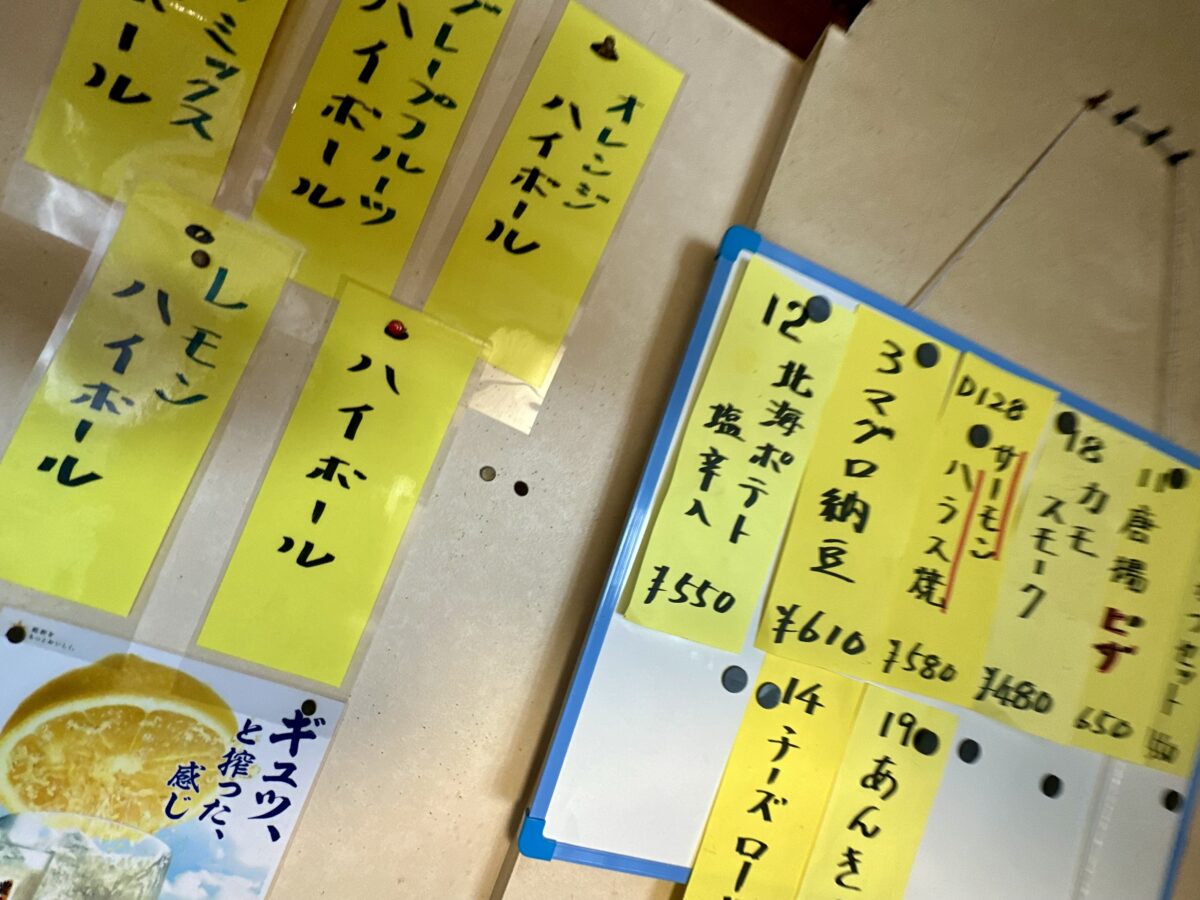 ミックス
ール
グレープフルーツ
ハイボール
オレンジ
ハイボール
レモン
ハイボール
ハイボール
ギュッ、
と搾った、
感じ
12
北海ポテト
塩辛入
¥550
3
マグロ納豆
¥610
D128
サーモン
ハラス焼
¥580
98
カモ
スモーク
¥480
11
唐揚ピザ
650
14
チーズロー
19
あんき